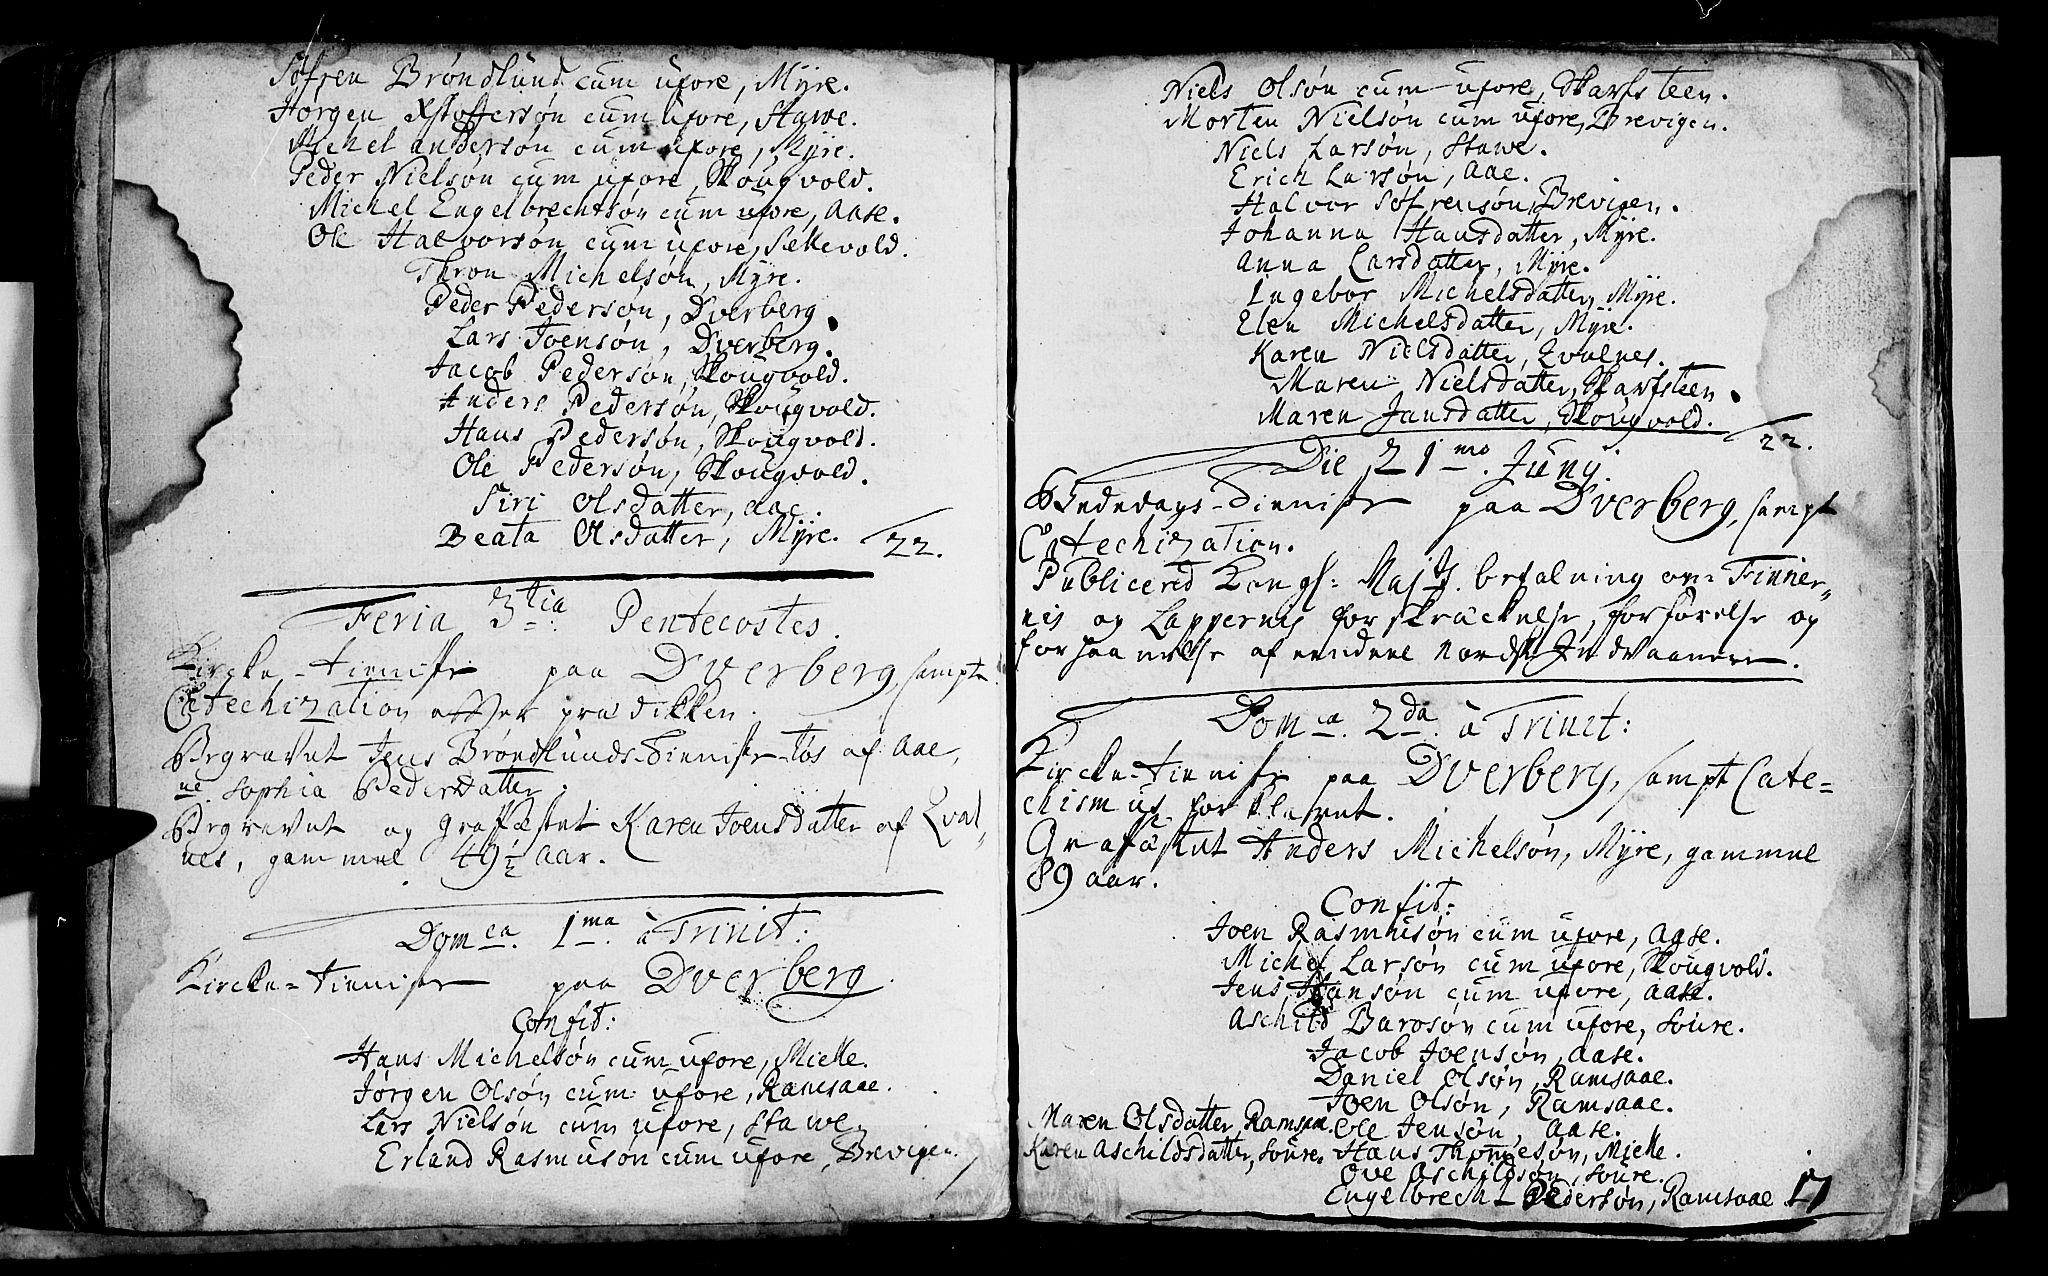 Søfren Brøndlund cum uxore, Myre.
Jørgen Xstoffersøn cum uxore, Stawe.
Michel Andersøn cum uxore, Myre.
Peder Nielsøn cum uxore, Skougvold.
Michel Engelbrechtsøn cum uxore, Aase.
Ole Halvorsøn cum uxore, Sellevold.
Thron Michelsøn, Myre.
Peder Pedersøn, Dverberg.
Lars Joensøn, Dverberg.
Jacob Pedersøn, Skougvold.
Anders Pedersøn, Skougvold.
Hans Pedersøn, Skougvold.
Ole Pedersøn, Skougvold.
Siri Olsdatter, Aae.
Beata Olsdatter, Myre. 22.
Feria 3tia Pentecostes.
Kircke-tieniste paa Dverberg, sampt
Catechization effter prædikken.
Begravet Jens Brøndlunds tieniste-tøs af Aae,
ne. Sophia Pedersdatter.
Begravet og graffæstet Karen Joensdatter af Qval-
nes, gammel 49½ aar.
Domca. 1ma. à Trinit:
Kircke-tieniste paa Dverberg.
Confit:
Hans Michelsøn cum uxore, Mielle.
Jørgen Olsøn cum uxore, Ramsaae.
Lars Nielsøn cum uxore, Stawe.
Erland Rasmusøn cum uxore, Brevigen.
Niels Olsøn cum uxore, Skarfsteen.
Morten Nielsøn cum uxore, Brevigen.
Niels Larsøn, Stawe.
Erich Larsøn, Aae.
Halvor Søfrensøn, Brevigen.
Johanna Hansdatter, Myre.
Anna Larsdatter, Myre.
Ingebor Michelsdatter, Myre.
Elen Michelsdatter, Myre.
Karen Nielsdatter, Qvalnes.
Maren Nielsdatter, Skarfsteen.
Maren Jansdatter, Skougvold. 22.
Die 21mo. Juny.
Bededags-tieniste paa Dverberg, sampt
Catechization.
Publicered Kongl: Majts. befalning om Finner-
nis og Lappernis forskræckelse, forførelse og
forhaanelse af eendeel Nordsk Indvaanere.
Domca. 2da. à Trinit:
Kircke-tieniste paa Dverberg, sampt Cate=
chismus forklaret.
Grafæstet Anders Michelsøn, Myre, gammel
89 aar.
Confit:
Joen Rasmusøn cum uxore, Aase.
Michel Larsøn cum uxore, Skougvold.
Jens Hansøn cum uxore, Aase.
Aschild Barosøn cum uxore, Soure.
Jacob Joensøn, Aase.
Daniel Olsøn, Ramsaae.
Joen Olsøn, Ramsaae.
Maren Olsdatter, Ramsaae. Ole Jensøn, Aase.
Karen Aschildsdatter, Soure. Hans Thomesøn, Mielle.
Ove Aschildsøn, Soure.
Engelbrecht Pedersøn, Ramsaae. 17